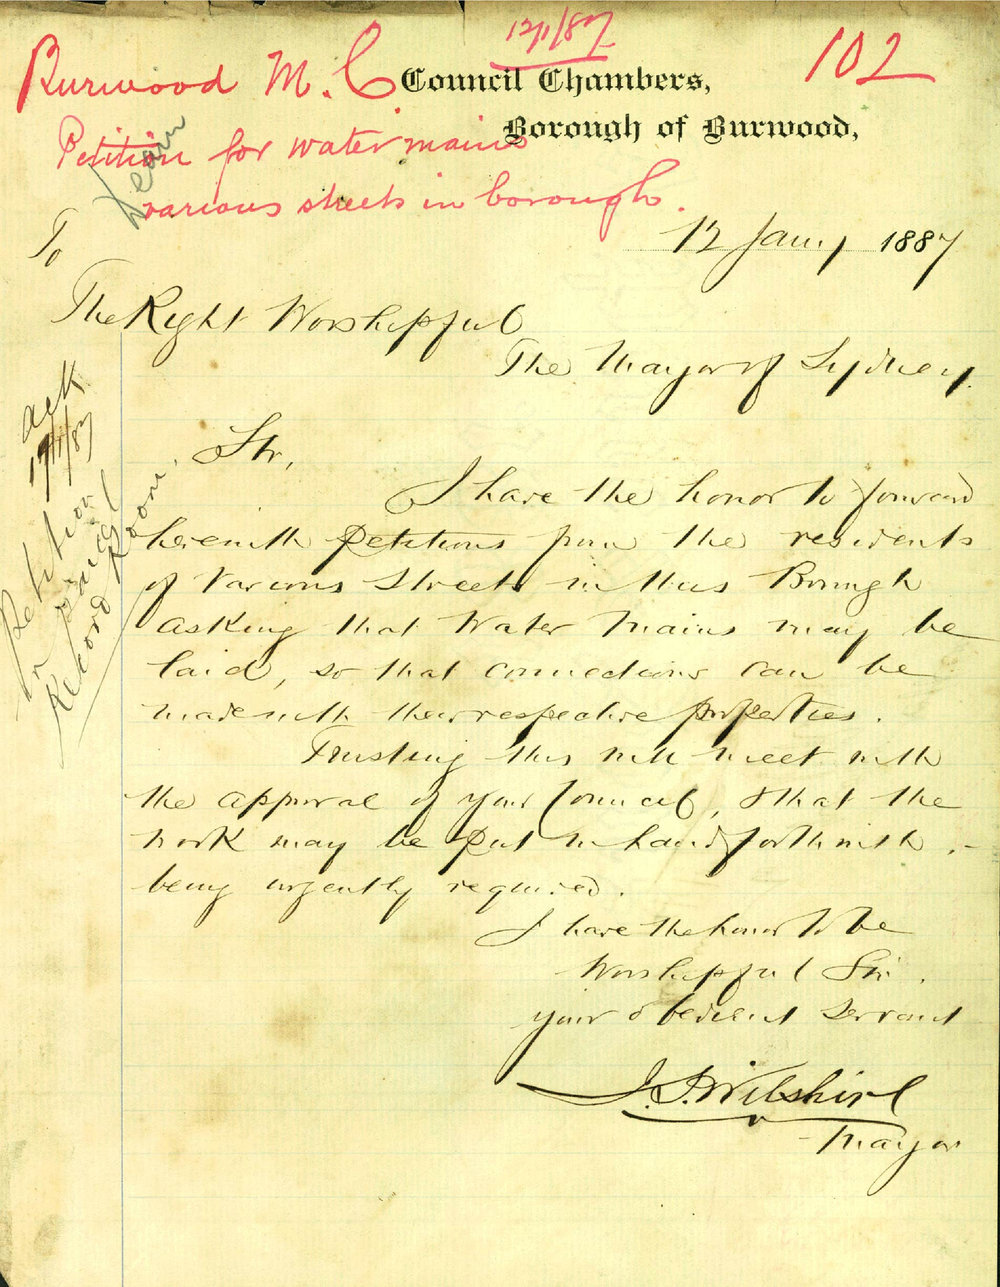 12/1/87
102
Burwood M.C.
Council Chambers,
Borough of Burwood,
Petition for water mains
various streets in borough.
12 Jany 1887
To
The Right Worshipful
The Mayor of Sydney.
Ack
17/1/87
Petition
in
Record Room.
Sir,
I have the honor to forward
herewith petitions from the residents
of Various Streets in this Borough
asking that Water Mains may be
laid, so that connections can be
made with their respective properties.
Trusting this will meet with
the approval of your Council, & that the
work may be put in hand forthwith, -
being urgently required.
I have the honor to be
Worshipful Sir.
your obedient servant
J.T. Wilshire
Mayor